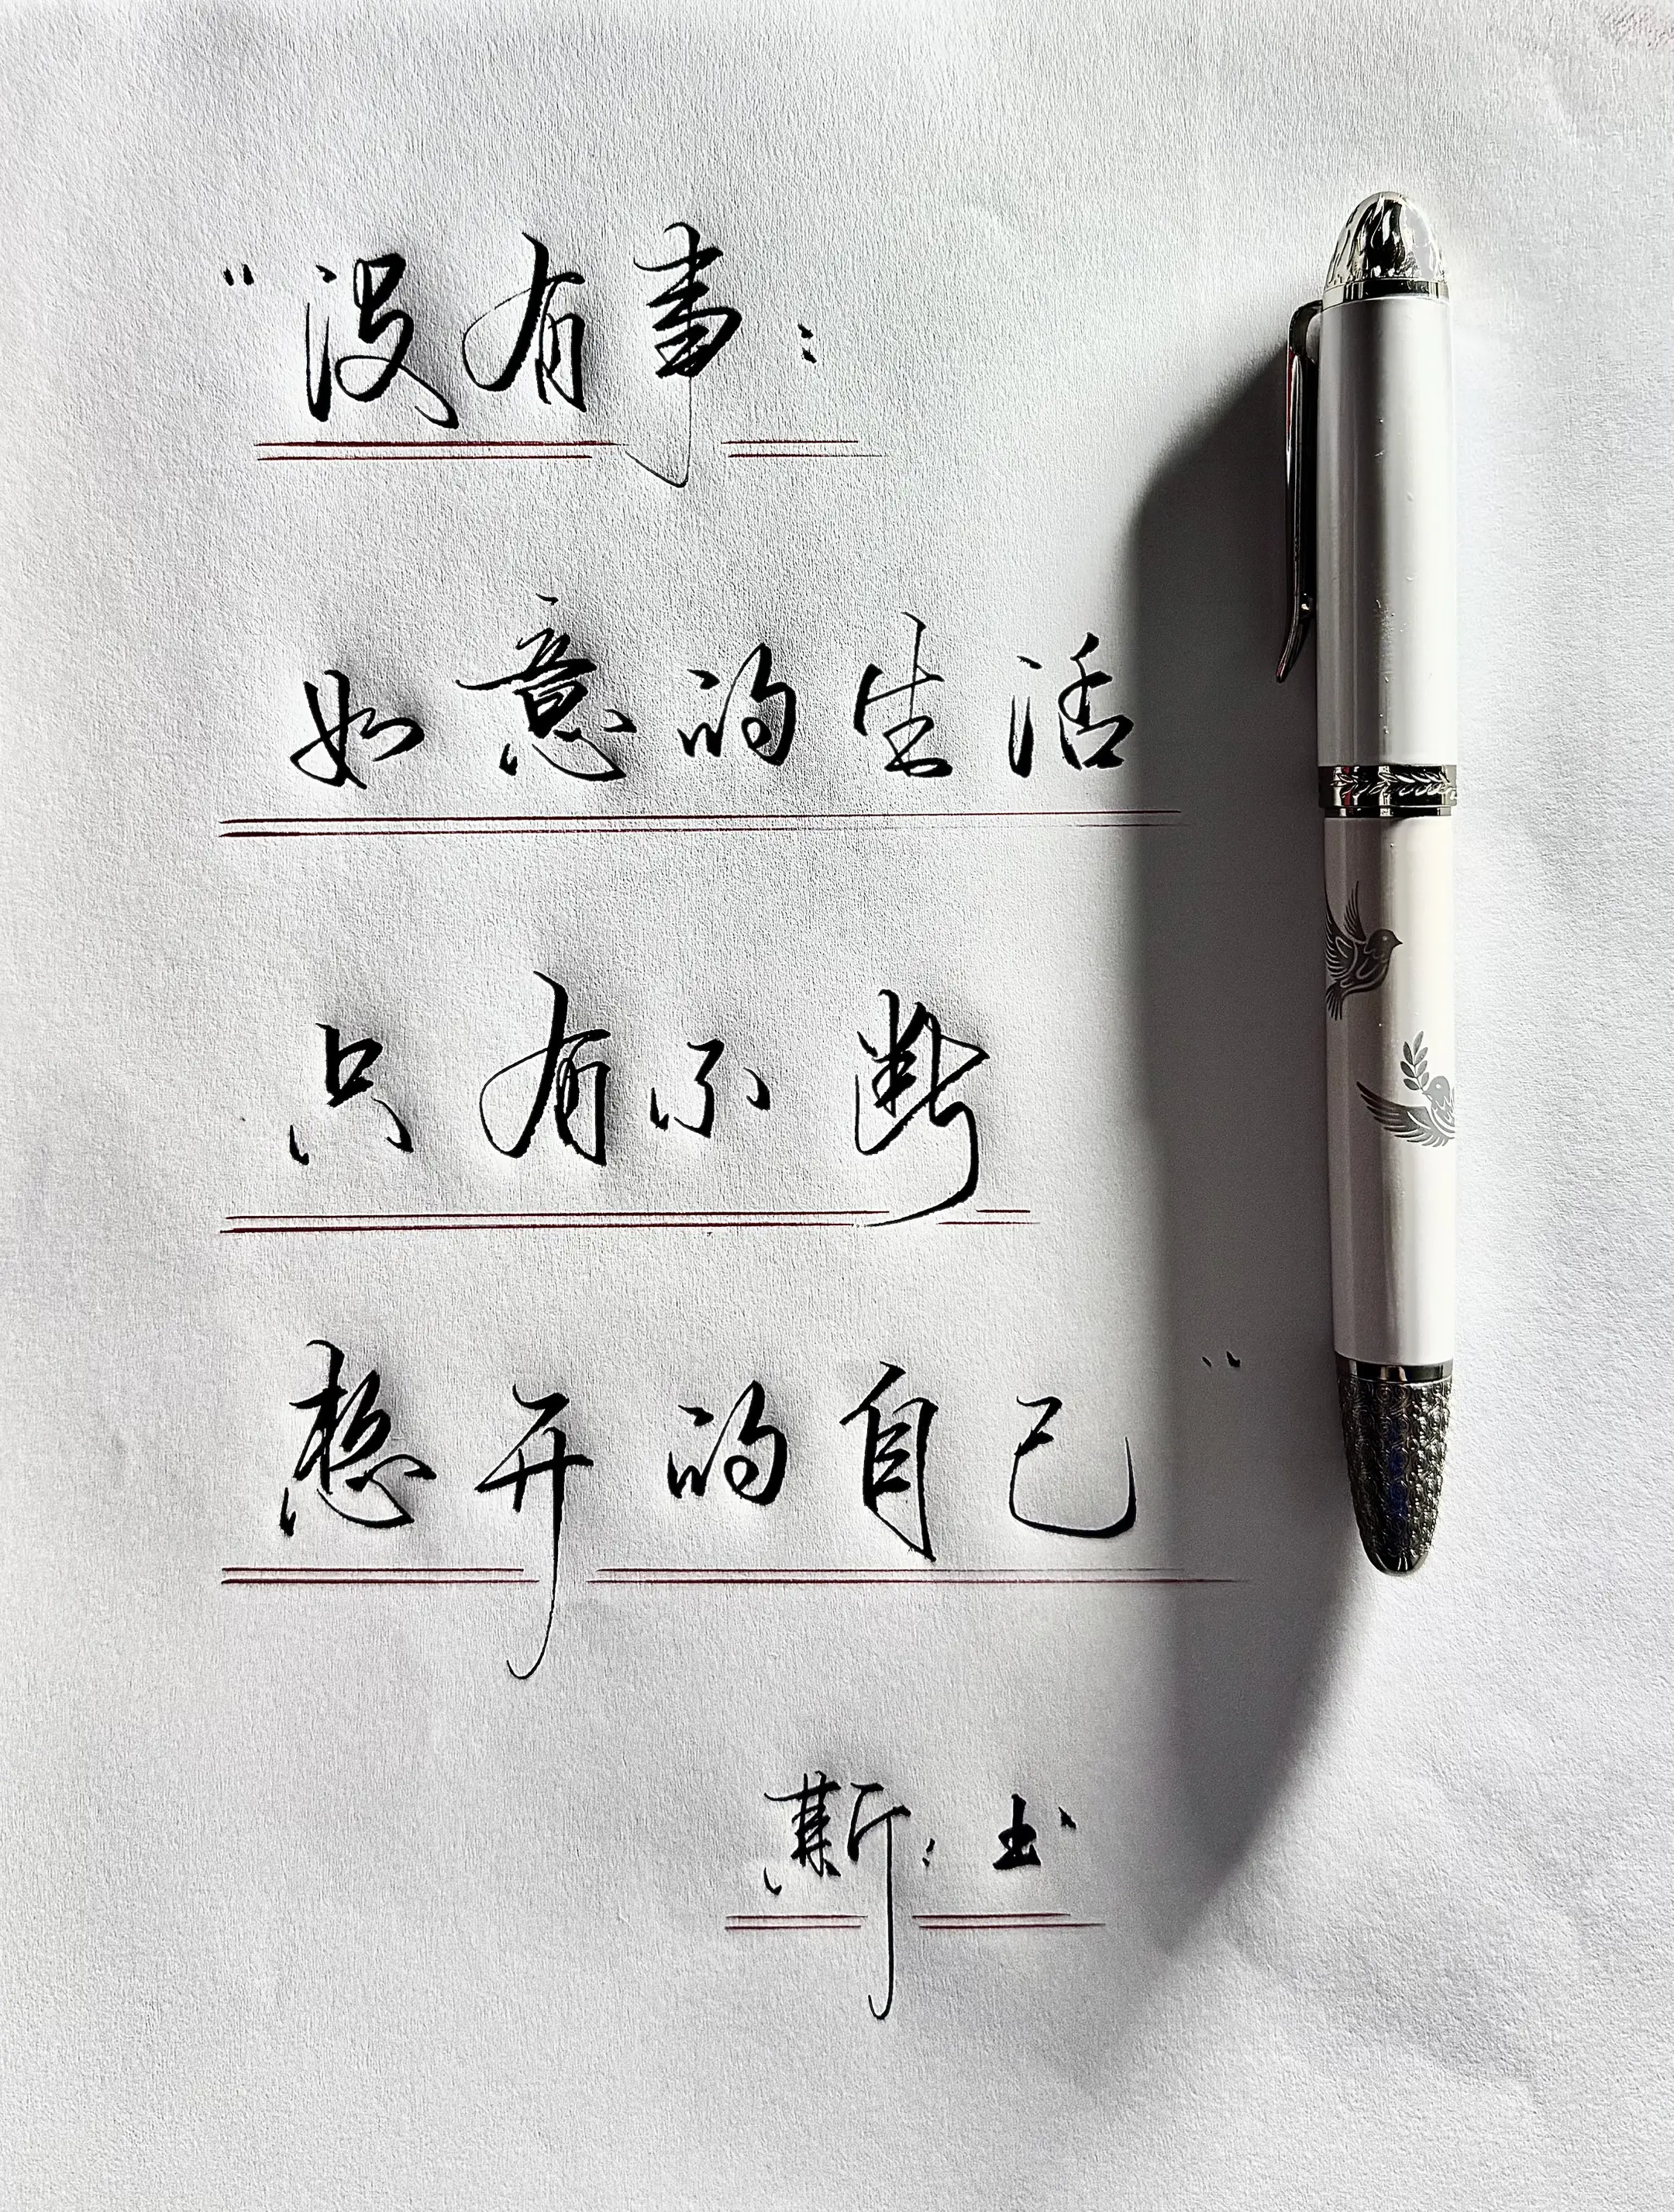 “没有事：
如意的生活
只有不断
想开的自己”
斯：书